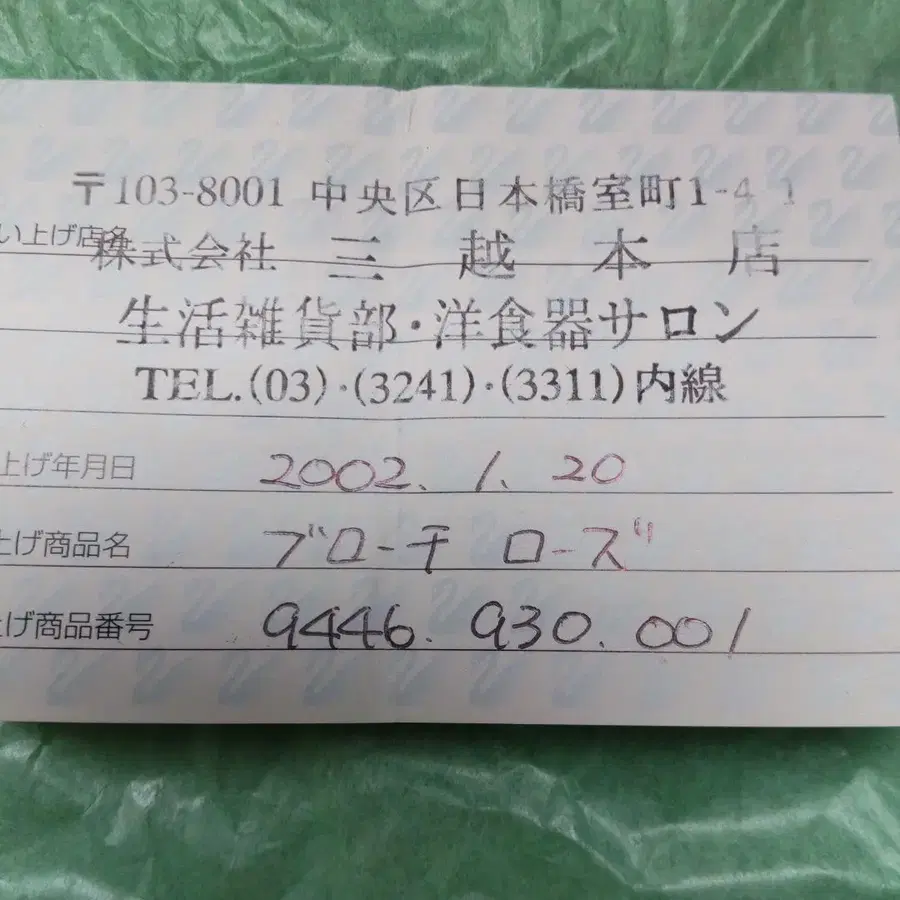 〒103-8001 中央区日本橋室町1-4-1
い上げ店名
株式会社 三越本店
生活雑貨部・洋食器サロン
TEL.(03)・(3241)・(3311)内線
上げ年月日 2002. 1. 20
上げ商品名 ブローチ ローズ
上げ商品番号 9446. 930. 001